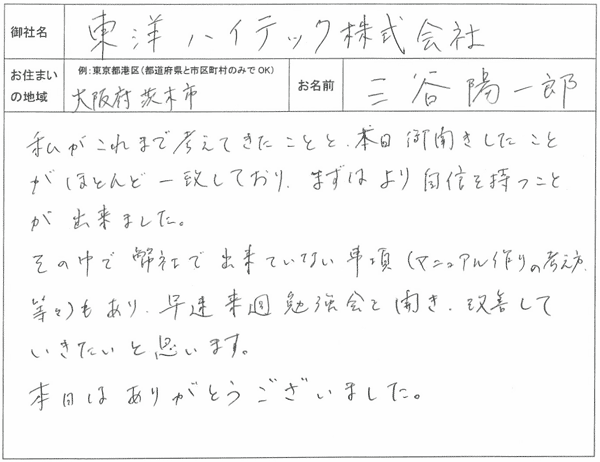 御社名 東洋ハイテック株式会社
お住まいの地域 例:東京都港区(都道府県と市区町村のみでOK) 大阪府茨木市 お名前 三谷陽一郎
私がこれまで考えてきたことと、本日御聞きしたこと
がほとんど一致しており、まずはより自信を持つこと
が出来ました。
その中で弊社で出来ていない事項(マニュアル作りの考え方
等々)もあり、早速来週勉強会を開き、改善して
いきたいと思います。
本日はありがとうございました。